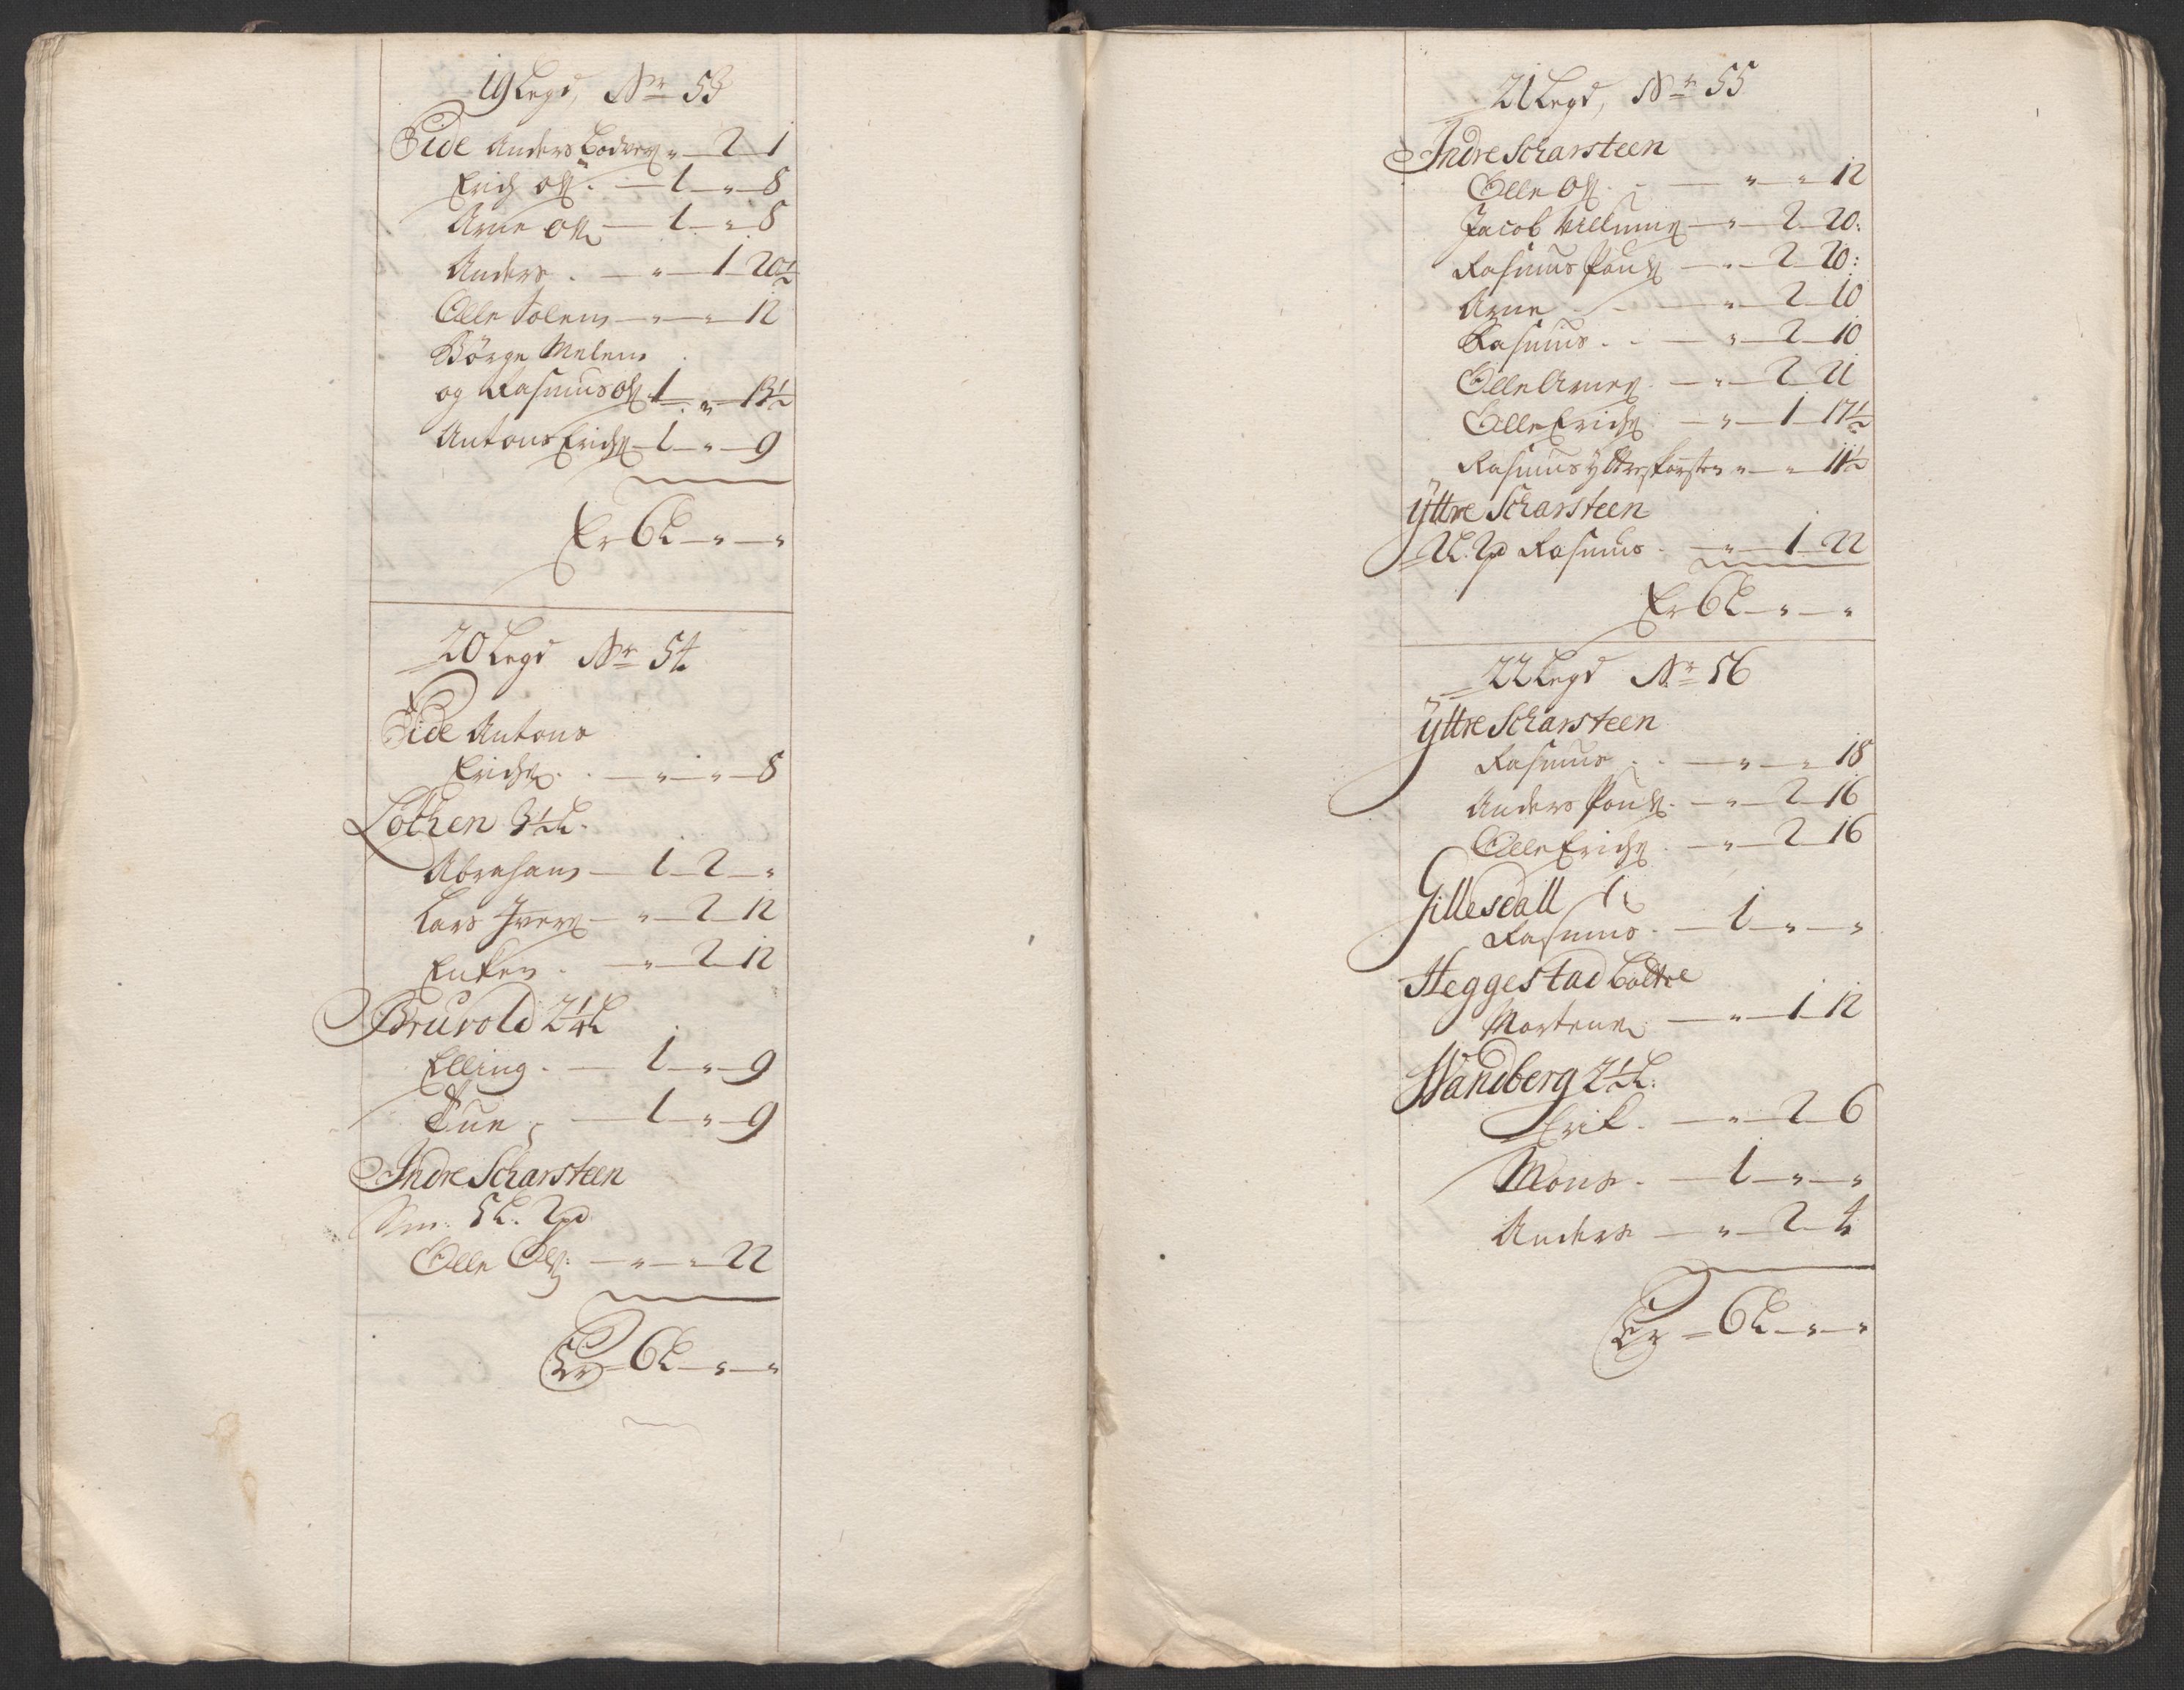 19 Legd, Nr 53
Eide Anders Bodvers " 2 1
Erich Ols. 1 " 8
Arne Ols 1 " 8
Anders . " 1 20½
Olle Solem " " 12
Börge Melem
og Rasmus Ols 1 " 13½
Antons Erichs 1 " 9
Er 6 L " "
20 Legd Nr 54
Eide Antons
Erichs. . " " 8
Löthen 3½ L.
Abraham 1 2 "
Lars Ivers " 2 12
Enken . " 2 12
Bruvold 2¼ L
Elling . 1 " 9
Tue 1 " 9
Indre Scharsteen
5 L. 2 pd
Olle Ols: " " 22
Er 6 L " "
21 Legd, Nr 55
Indre Scharsteen
Olle Ols . " " 12
Jacob Villums " 2 20:
Rasmus Pouls " 2 20:
Arne " 2 10
Rasmus . " 2 10
Olle Arnes . " 2 21
Olle Erichs " 1 17½
Rasmus yttreskarsten " " 11½
Yttre Scharsteen
2 L. 2 pd Rasmus . " 1 22
Er 6 L " "
22 Legd Nr 56
Yttre Scharsteen
Rasmus . . " " 18
Anders Pouls. " 2 16
Olle Erichs . " 2 16
Gillesdall 1 L
Rasmus . 1 " "
Heggestad
Mortens " 1 12
Wandberg 2½ L:
Erik . " 2 6
Mons . 1 " "
Anders " 2 4
Er 6 L " "